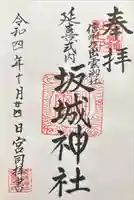 奉拝
延喜式内
坂城神社
令和四年十月廿四日宮司拝書